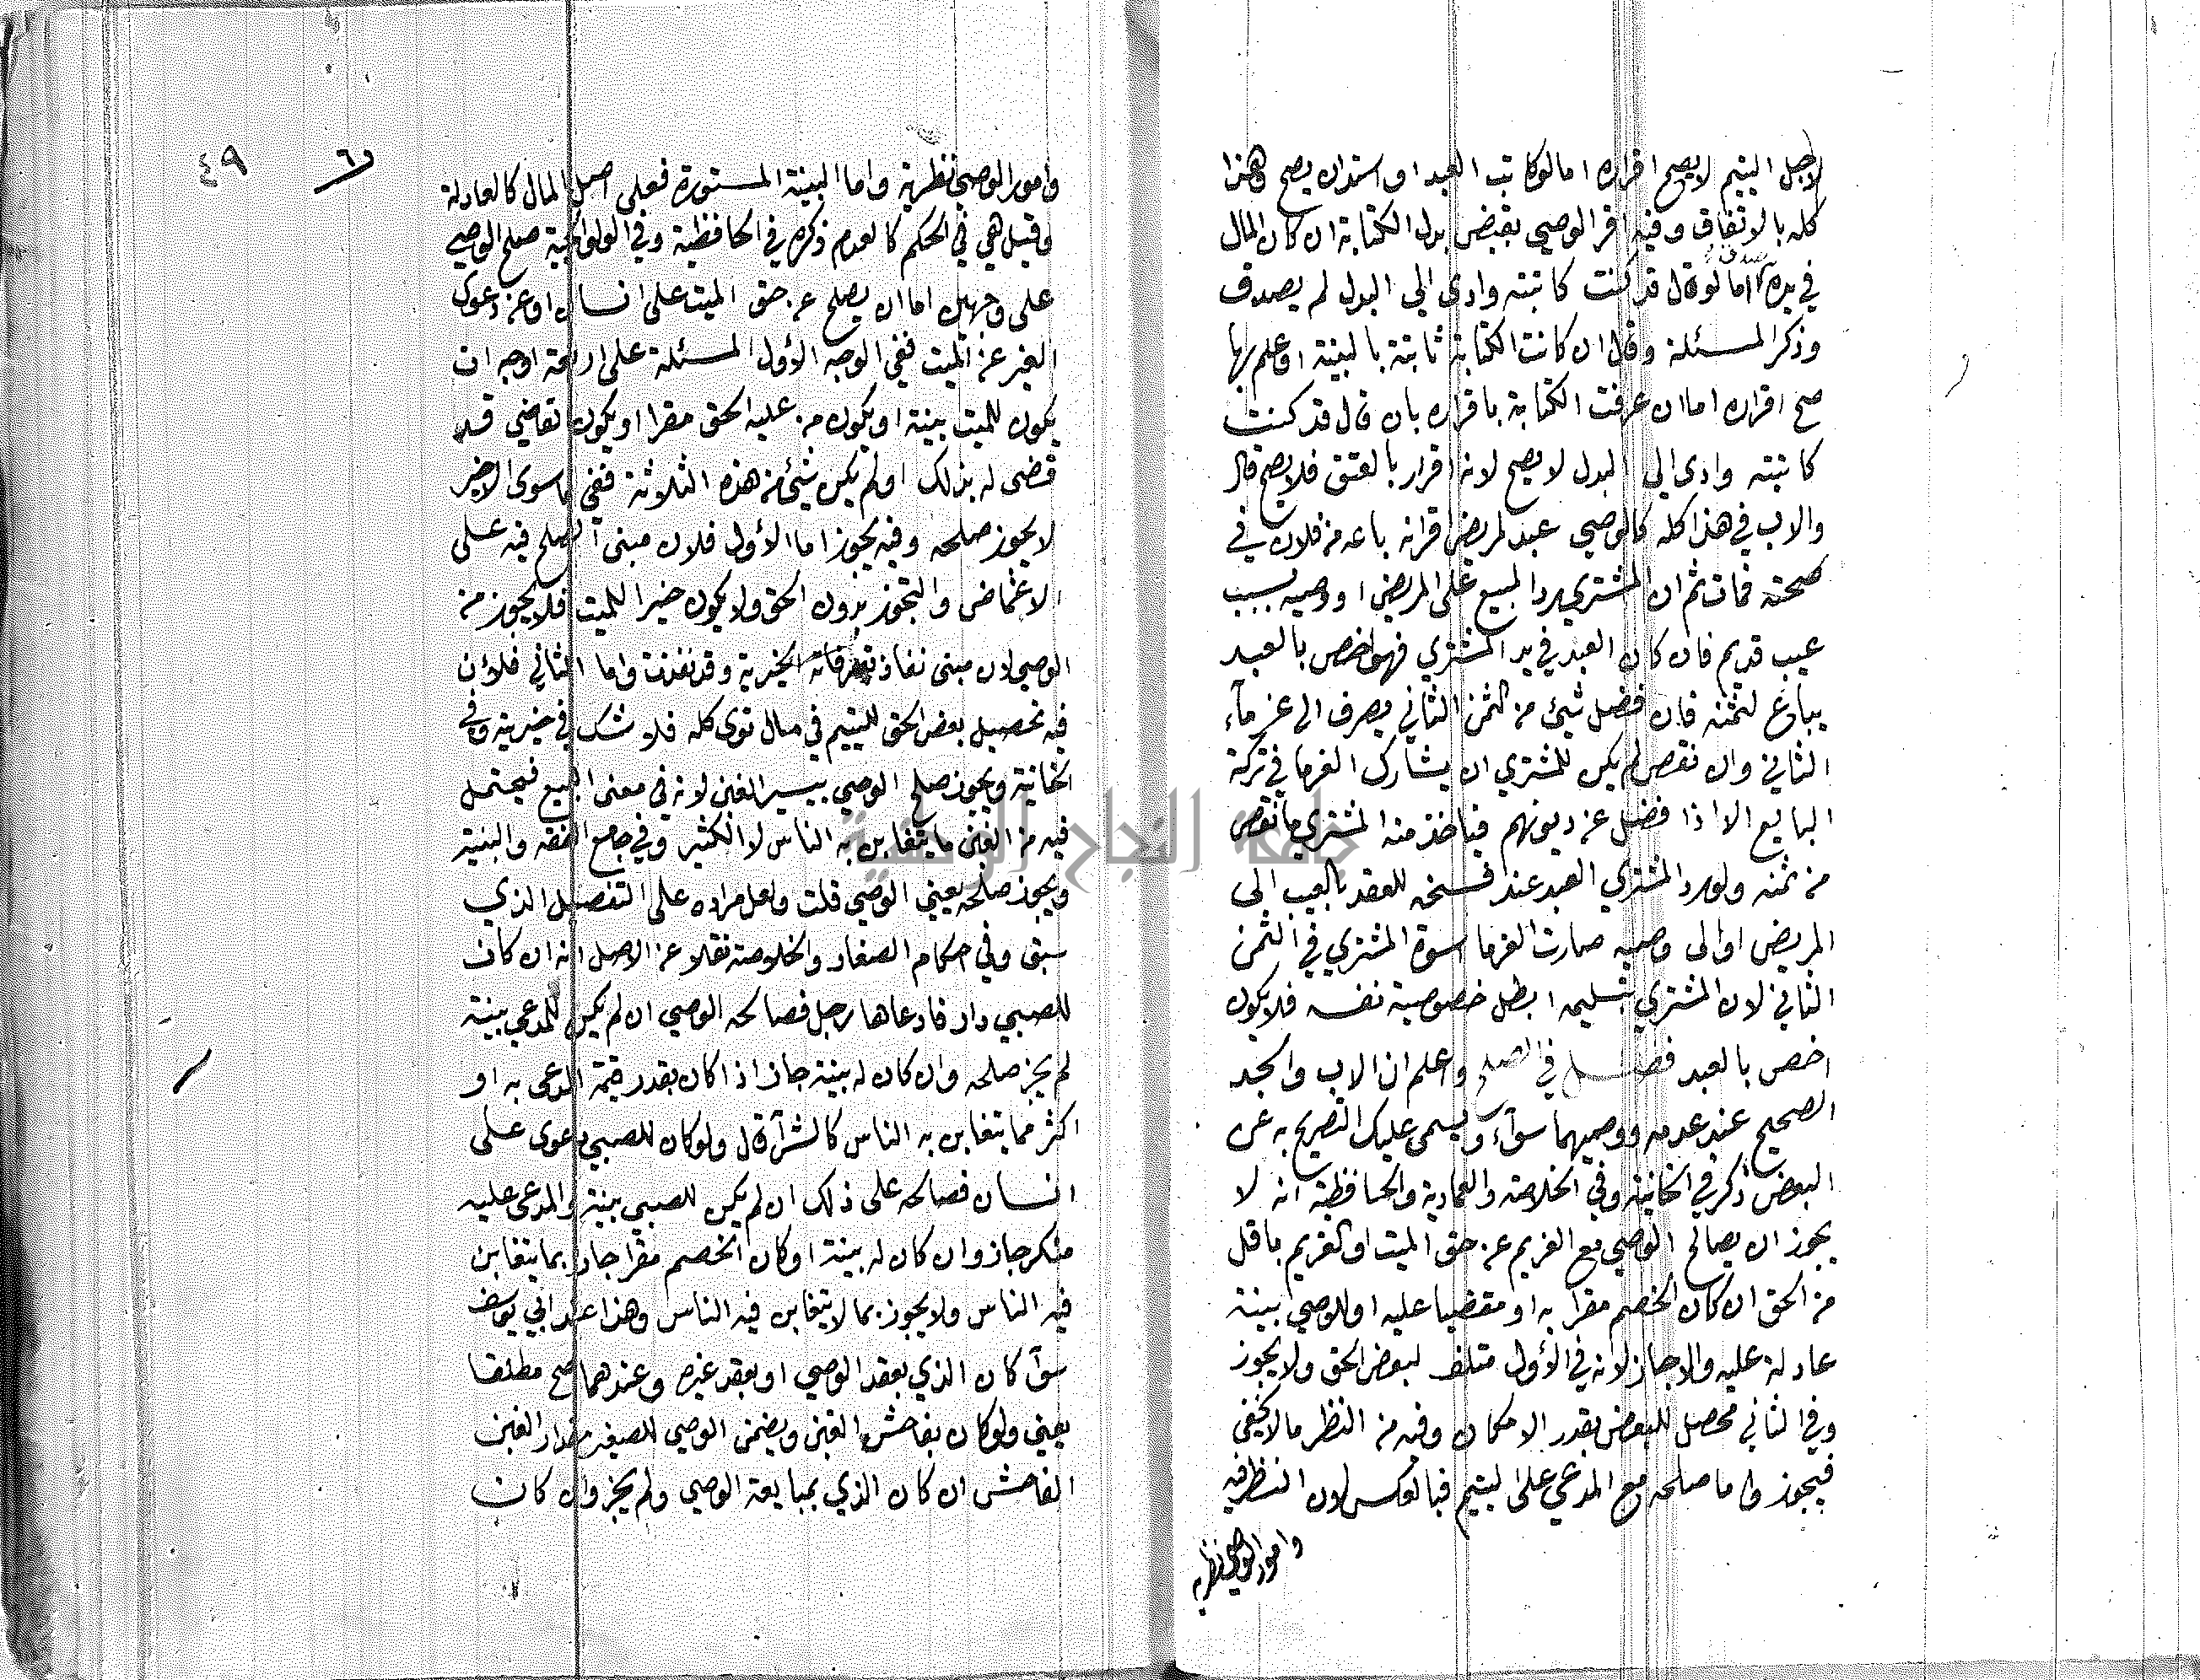 لاجل اليتيم لا يصح اقراره اما لو كاتب العبد او استدان يصح وهذا
كله بالاتفاق وفيه اقر الوصي بقبض بدل الكتابة ان كان المال
في يده اما لو قال قد كنت كاتبته وادى الي البدل لم يصدق
وذكر المسئلة وقال ان كانت الكتابة ثابتة بالبينة او علم بها
صح اقراره اما ان عرفت الكتابة باقراره بان قال قد كنت
كاتبته وادى الي البدل لا يصح لانه اقرار بالعتق فلا يصح قال
والاب في هذا كله كالوصي عبد لمريض اقر انه باعه من فلان في
صحته فمات ثم ان المشتري رد المبيع على المريض او وصيه بسبب
عيب قديم فان كان العبد في يد المشتري فهو اخص بالعبد
يباع لثمنه فان فضل شئ من الثمن الثاني يصرف الى غرمآء
الثاني وان نقص لم يكن للمشتري ان يشارك الغرما في تركة
البايع الا اذا فضل عن ديونهم فياخذ منه المشتري ما نقص
من ثمنه ولو رد المشتري العبد عند فسخه للعقد بالعيب الى
المريض او الى وصيه صارت الغرما اسوة المشتري في الثمن
الثاني لان المشتري بتسليمه ابطل خصوصية نفسه فلا يكون
اخص بالعبد فصل في الصلح واعلم ان الاب والجد
الصحيح عند عدمه ووصيهما سوآء وليسمى عليك التصريح به عن
البعض ذكر في الخانية وفي الخلاصة والعمادية والحافظية انه لا
يجوز ان يصالح الوصي مع الغريم عن حق الميت او الغريم باقل
من الحق ان كان الخصم مقرا به او مقضيا عليه او للوصي بينة
عادلة عليه والا جاز لانه في الأول متلف لبعض الحق ولا يجوز
وفي الثاني محصل للبعض بقدر الامكان وفيه من النظر ما لا يخفى
فيجوز واما صلحه مع المدعي على اليتيم فبالعكس لان النظر فيه
وامور الوصي نظرية
٤٩
وامور الوصي نظرية واما البينة المستورة فعلى اصل المال كالعادلة
وقيل هي في الحكم كالعدم ذكره في الحافظية وفي الولوالجية صلح الوصي
على وجهين اما ان يصلح عن حق الميت على انسان او عن دعوى
الغير عن الميت ففي الوجه الأول المسئلة على اربعة اوجه ان
يكون للميت بينة او يكون من عليه الحق مقرا او يكون القاضي قد
قضى له بذلك او لم يكن شئ من هذه الثلاثة ففي ما سوى الاخير
لا يجوز صلحه وفيه يجوز اما الأول فلان مبنى الصلح فيه على
الاغماض والتجوز بدون الحق ولا يكون خيرا للميت فلا يجوز من
الوصي لان مبنى نفاذ تصرفاته الخيرية وقد نفذت واما الثاني فلأن
فيه تحصيل بعض الحق لليتيم في مال توى كله فلا شك في خيريته وفي
الخانية ويجوز صلح الوصي بيسير الغبن لانه في معنى البيع فيحتمل
فيه من الغبن ما يتغابن به الناس لا الكثير وفي جامع الفقه والبنية
ويجوز صلحه يعني الوصي قلت ولعل مراده على التفصيل الذي
سبق وفي احكام الصغار والخلاصة نقلا عن الاصل انه ان كان
للصبي دار فادعاها رجل فصالحه الوصي ان لم يكن للمدعي بينة
لم يجز صلحه وان كان له بينة جاز اذا كان بقدر قيمة المدعى به او
اكثر مما يتغابن به الناس كالشرآ قال ولو كان للصبي دعوى على
انسان فصالحه على ذلك ان لم يكن للصبي بينة والمدعى عليه
منكر جاز وان كان له بينة او كان الخصم مقرا جاز بما يتغابن
فيه الناس ولا يجوز بما لا يتغابن فيه الناس وهذا عند ابي يوسف
سوآ كان الذي بعقد الوصي او بعقد غيره وعندهما صح مطلقا
يعني ولو كان بفاحش الغبن ويضمن الوصي للصغير مقدار الغبن
الفاحش ان كان الذي بمبايعة الوصي ولم يجز وان كان
جامعة النجاح الوطنية